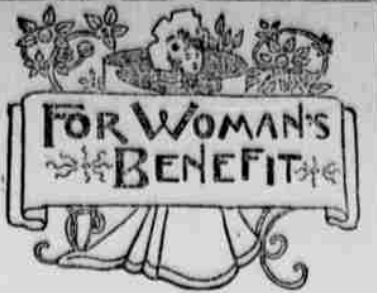 FOR WOMAN'S
BENEFIT